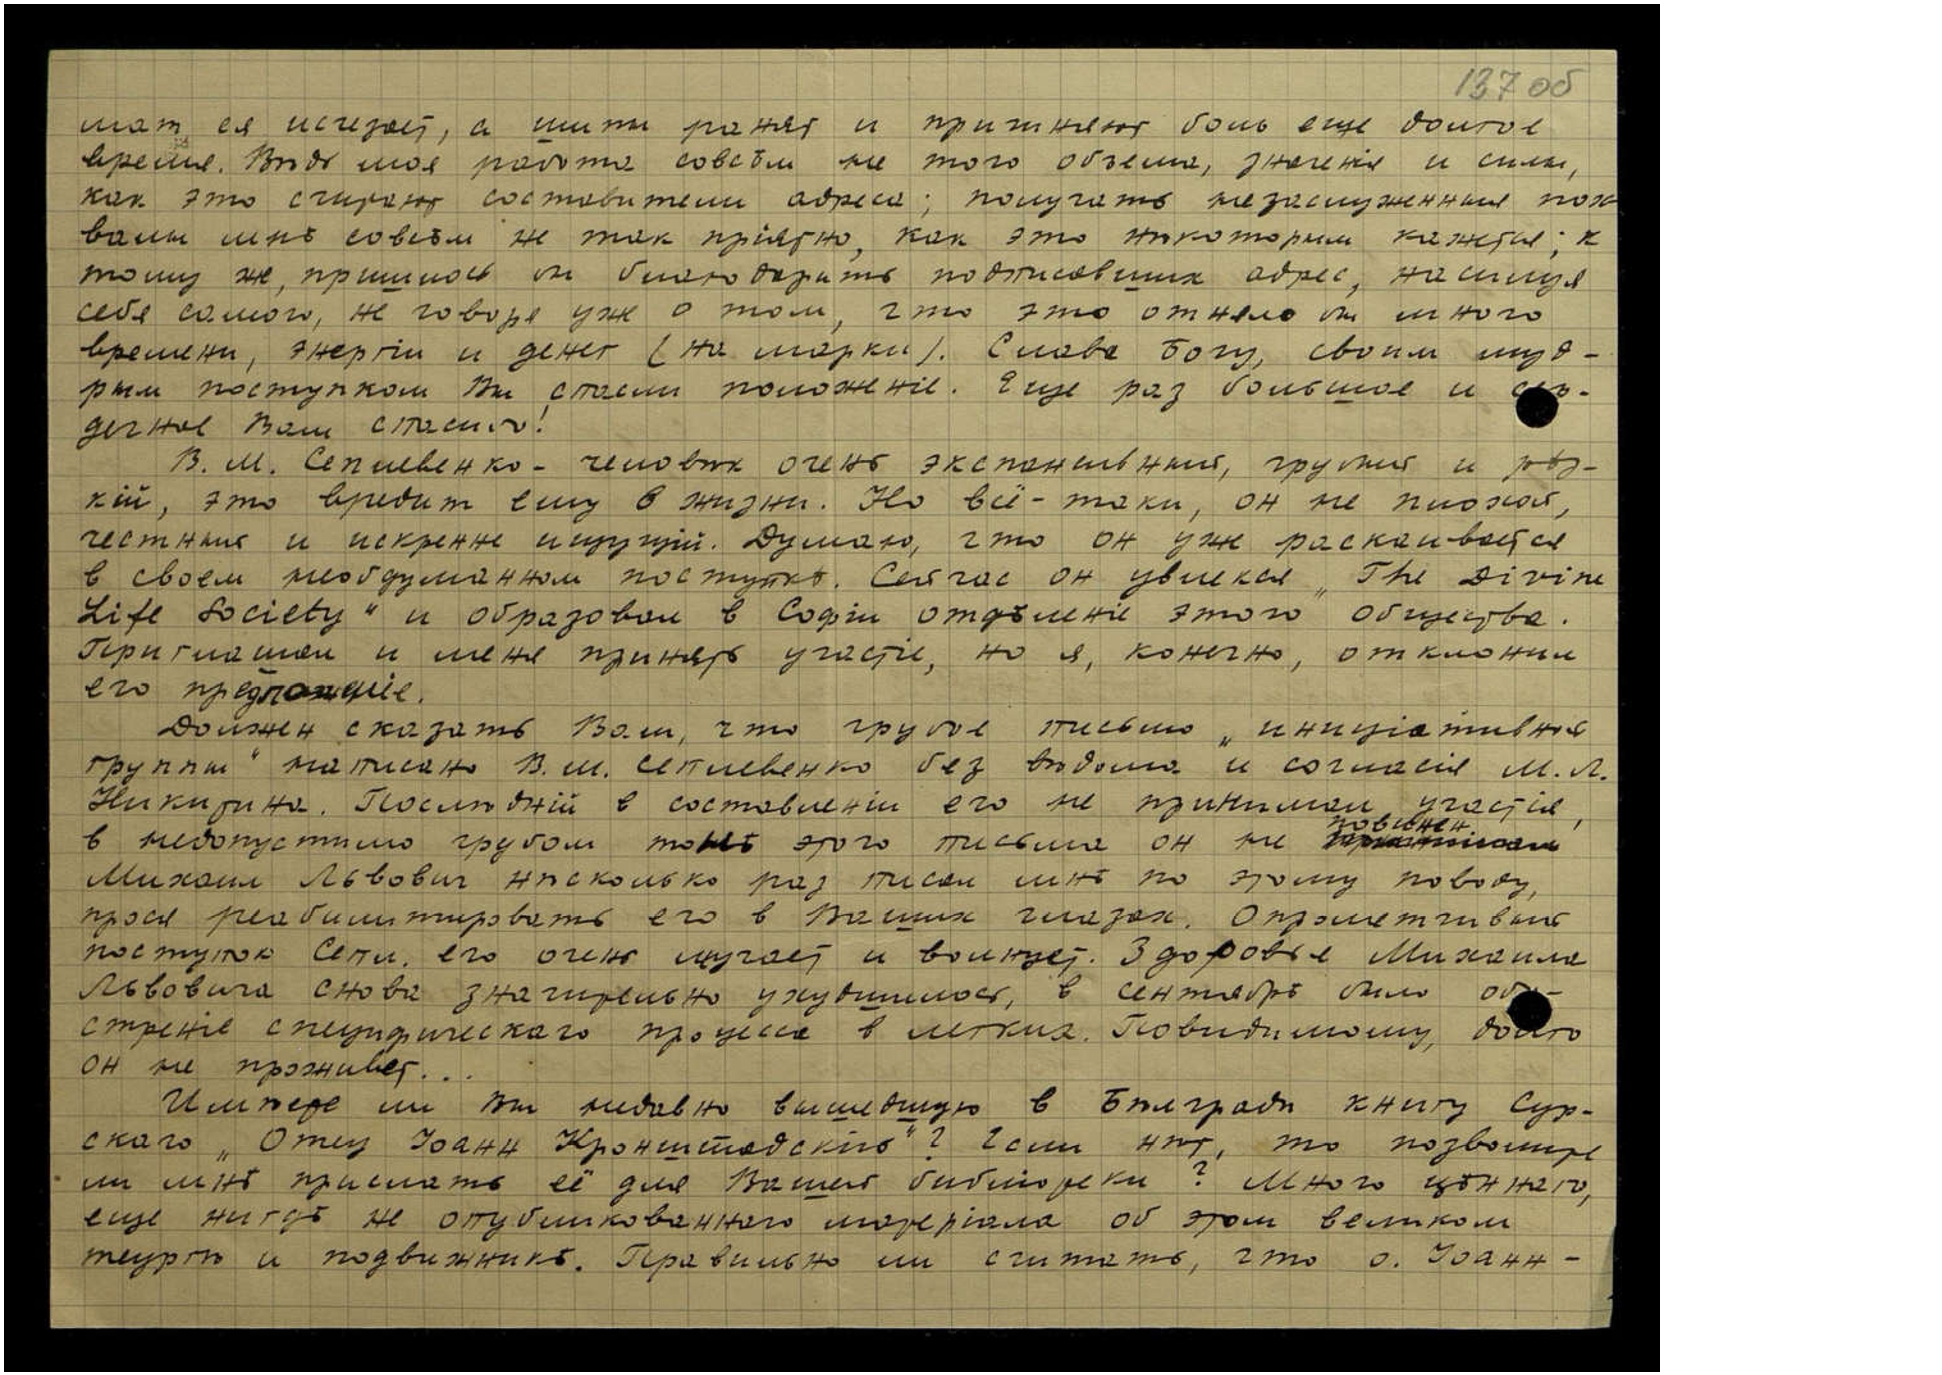 137 об
мат ея исчезает, а шипы ранят и причиняют боль еще долгое
время. Вѣдь моя работа совсѣм не того объема, значенія и силы,
как это считают составители адреса; получать незаслуженныя пох
валы мнѣ совсѣм не так пріятно, как это нѣкоторым кажется; к
тому же, пришлось бы благодарить подписавших адрес, насилуя
себя самого, не говоря уже о том, что это отняло бы много
времени, энергіи и денег (на марки). Слава Богу, своим муд-
рым поступком Вы спасли положеніе. Еще раз большое и сер-
дечное Вам спасибо!
В. М. Сеплевенко - человѣк очень экспансивный, грубый и рѣз-
кій, это вредит ему в жизни. Но всё-таки, он не плохой,
честный и искренне ищущій. Думаю, что он уже раскаивается
в своем необдуманном поступкѣ. Сейчас он увлекся „The Divine
Life Society" и образовал в Софіи отдѣленіе этого общества.
Приглашал и меня принять участіе, но я, конечно, отклонил
его предложеніе.
Должен сказать Вам, что грубое письмо „иниціативной
группы" написано В. М. Сеплевенко без вѣдома и согласія М. Л.
Никитина. Послѣдній в составленіи его не принимал участія,
в недопустимо грубом тонѣ этого письма он не повинен
Михаил Львович нѣсколько раз писал мнѣ по этому поводу,
прося реабилитировать его в Ваших глазах. Опрометчивый
поступок Сепл. его очень мучает и волнует. Здоровье Михаила
Львовича снова значительно ухудшилось, в сентябрѣ было обо-
стреніе специфическаго процесса в легких. Повидимому, долго
он не проживет...
Имѣете ли Вы недавно вышедшую в Бѣлградѣ книгу Сур-
скаго „Отец Іоанн Кронштадскій"? Если нѣт, то позвольте
ли мнѣ прислать её для Вашей библіотеки? Много цѣннаго,
еще нигдѣ не опубликованнаго матеріала об этом великом
теургѣ и подвижникѣ. Правильно ли считать, что о. Іоанн -